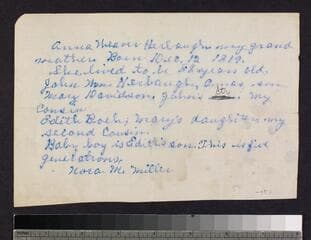 Anna Weaver Herbaugh my grand
mother Born Dec, 12 1819.
She lived to be 88 years old.
John Wm Herbaugh, Annas son
Mary Davidson, John's my
Cousin.
Edith Boehn, Mary's daughter my
second Cousin.
Baby boy is Edith's son. This is five
generations,
Nora Mc Miller